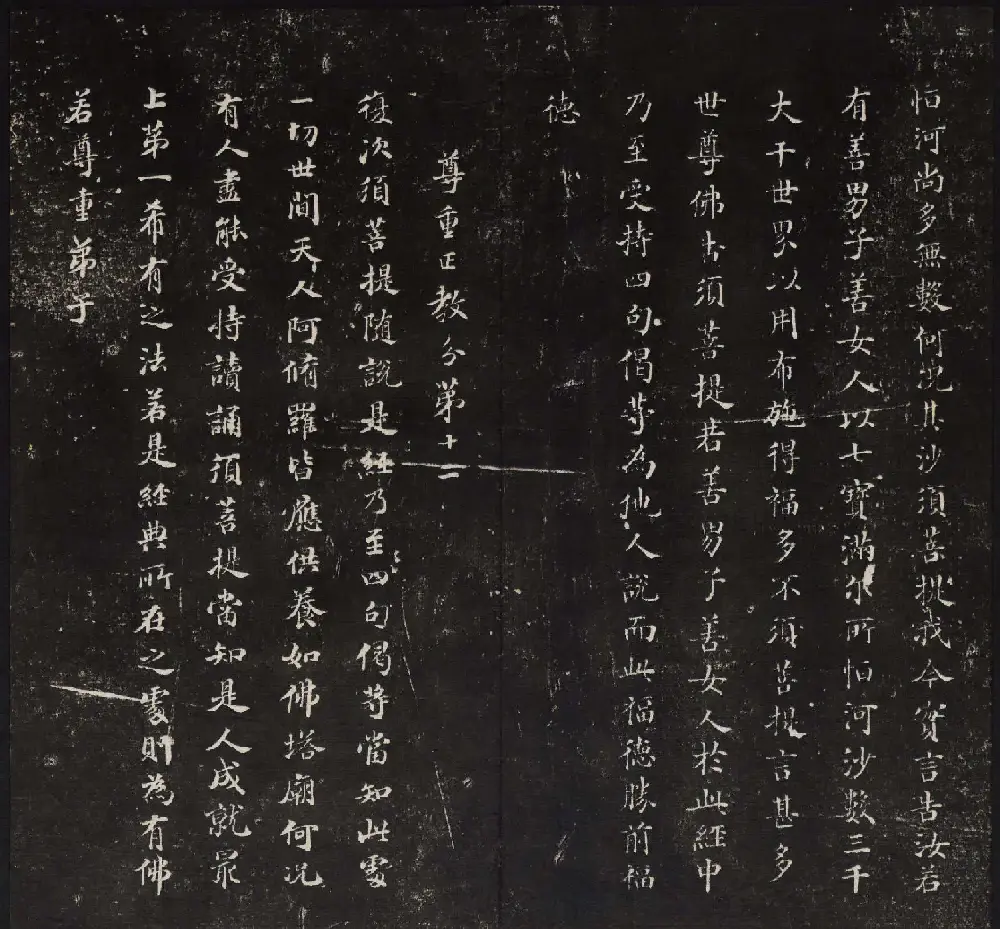 恒河尚多無數何況其沙須菩提我今實言告汝若
有善男子善女人以七寶滿尒所恒河沙數三千
大千世界以用布施得福多不須菩提言甚多
世尊佛告須菩提若善男子善女人於此經中
乃至受持四句偈等為他人說而此福德勝前福
德
尊重正教分第十二
復次須菩提隨說是經乃至四句偈等當知此處
一切世間天人阿脩羅皆應供養如佛塔廟何況
有人盡能受持讀誦須菩提當知是人成就最
上第一希有之法若是經典所在之處則為有佛
若尊重弟子